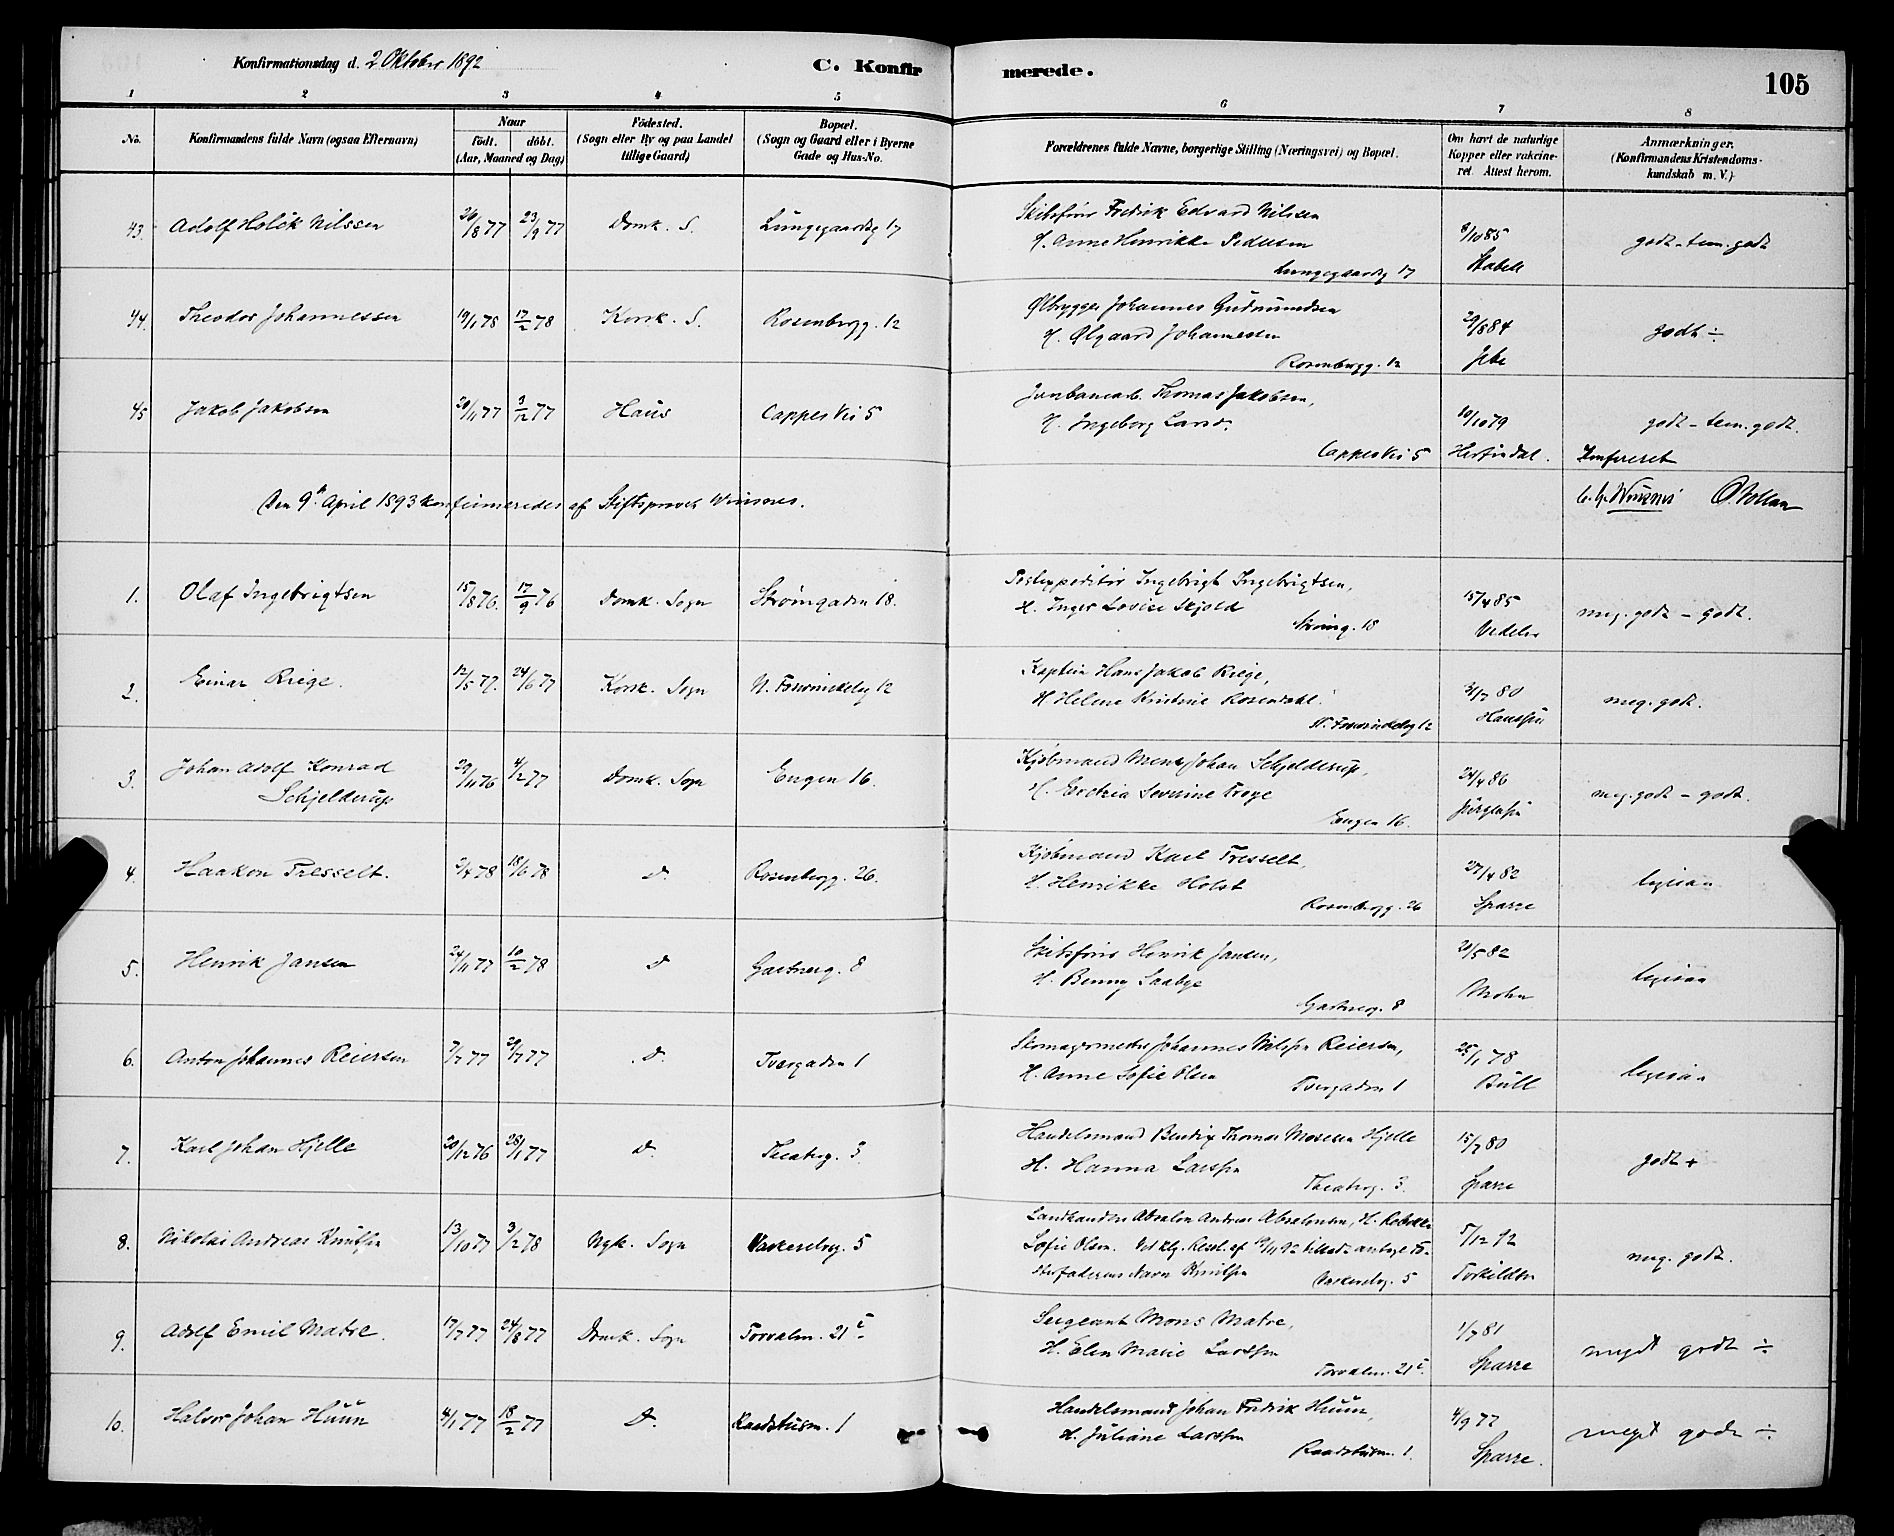 Konfirmationsdag d. 2 Oktober 1892
C. Konfirmerede.
105
1 2 3 4 5 6 7 8
No.
Konfirmandens fulde Navn (ogsaa Efternavn)
Naar
født. døbt.
(Aar, Maaned og Dag)
Fødested.
(Sogn eller By og paa Landet
tillige Gaard)
Bopæl.
(Sogn og Gaard eller i Byerne
Gade og Hus-No.
Forældrenes fulde Navne, borgerlige Stilling (Næringsvei) og Bopæl.
Om havt de naturlige
Kopper eller vakcine-
ret Attest herom.
Anmærkninger.
(Konfirmandens Kristendoms-
kundskab m. V.)
43. Adolf Holck Nilssen 26/8 77 23/9 77 Domk. S. Lungegaardsg 17
Skibsfører Fredrik Edvard Nilssen
H. Anne Henrikke Pedersen
Lungegaardsg 17
8/10 85
Stabell
godt - tem. godt
44. Theodor Johannessen 19/1 78 17/2 78 Korsk. S. Rosenbergg. 12
Ølbrygger Johannes Gudmundsen
H. Ølgaard Johannessen
Rosenbergg. 12
29/8 84
Jebe
godt ÷
45 Jakob Jakobsen 20/11 77 3/12 77 Haus Cappes Vei 5
Jernbanearb. Thomas Jakobsen,
H. Ingeborg Larsd.
Cappes Vei 5
10/10 79
Herfindal.
godt - tem. godt.
Konfereret
Den 9de April 1893 konfirmeredes af Stiftsprovst Wisnes.
1. Olaf Ingebrigtsen 15/8 76. 17/9 76 Domk. Sogn Strømgaden 18.
Postexpeditør Ingebrigt Ingebrigtsen,
H. Inger Lovise Skjold
Strømg. 18
15/4 85
Vedeler
meg. godt - godt.
2. Einar Riege. 12/5 77. 24/6 77 Korsk. Sogn N. Fosswinckelsg 12
Kaptein Hans Jakob Riege,
H Helene Kristine Rosendahl.
N. Fosswinckelsg 12
31/7 80
Hanssen
meg. godt.
3. Johan Adolf Konrad
Schjelderup
29/11 76 4/2 77 Domk. Sogn Engen 16.
Kjøbmand Mens Johan Schjelderup,
H. Severine Troye
Engen 16.
24/4 86
Jürgensen
meg. godt - godt.
4. Haakon Tresselt. 2/4 78 18/6 78 D. Rosenbergg. 26.
Kjøbmand Karl Tresselt,
H. Henrikke Holst
Rosenbergg. 26
27/4 82
Sparre
ligesaa
5. Henrik Jansen 24/11 77 10/2 78 D Gartnerg. 8
Skibsfører Henrik Jansen,
H. Benny Saabye
Gartnerg. 8
20/5 82
Mohn
ligesaa
6. Anton Johannes Reiersen 7/7 77 29/7 77 D. Tvergaden 1
Skomagermester Johannes Nilssen Reiersen,
H. Anne Sofie Olsen
Tvergaden 1
25/1 78
Bull
ligesaa
7. Karl Johan Hjelle 20/12 76 28/1 77 D. Theaterg. 3.
Handelsmand Bendix Thomas Mosesen Hjelle
H. Hanna Larssen
Theaterg. 3.
15/7 80
Sparre
godt +
8. Nikolai Andreas Knutsen 13/10 77 3/2 78 Nyk. Sogn Vaskerelvsg. 5
Landhandler Absalon Andreas Absalonsen, H. Rebekka
Sofie Olsen. Ved kgl. Resol. af 19/11 92 tilladt antage Fo-
sterfaderens Navn Knutsen
Vaskerelvsg. 5
5/12 92
Torkildsen
meg. godt.
9. Adolf Emil Matre. 17/7 77 24/8 77 Domk. Sogn Torvalm. 21 c.
Sergeant Mons Matre,
H. Elen Marie Larssen
Torvalm. 21 c.
1/7 81
Sparre
meget godt ÷
10. Halvor Johan Huun 4/1 77 18/2 77 D. Raadstuem. 1
Handelsmand Johan Fredrik Huun,
H. Juliane Larssen
Raadstuem. 1.
4/9 77
Sparre.
meget godt ÷